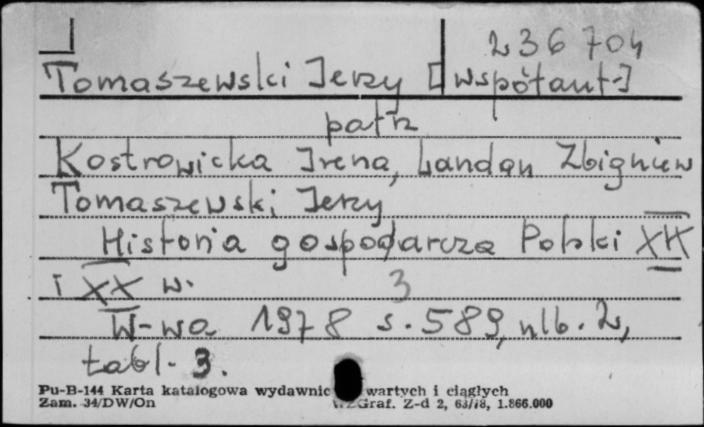 236704
Tomaszewski Jerzy [współaut.]
patrz
Kostrowicka Irena, Landau Zbigniew
Tomaszewski Jerzy
Historia gospodarcza Polski XIX
i XX w. 3
W-wa 1978 s. 589, nlb. 2,
tabl. 3.
Pu-B-144 Karta katalogowa wydawnic wartych i ciągłych
Zam. 34/DW/On Graf. Z-d 2, 63/78, 1.866.000